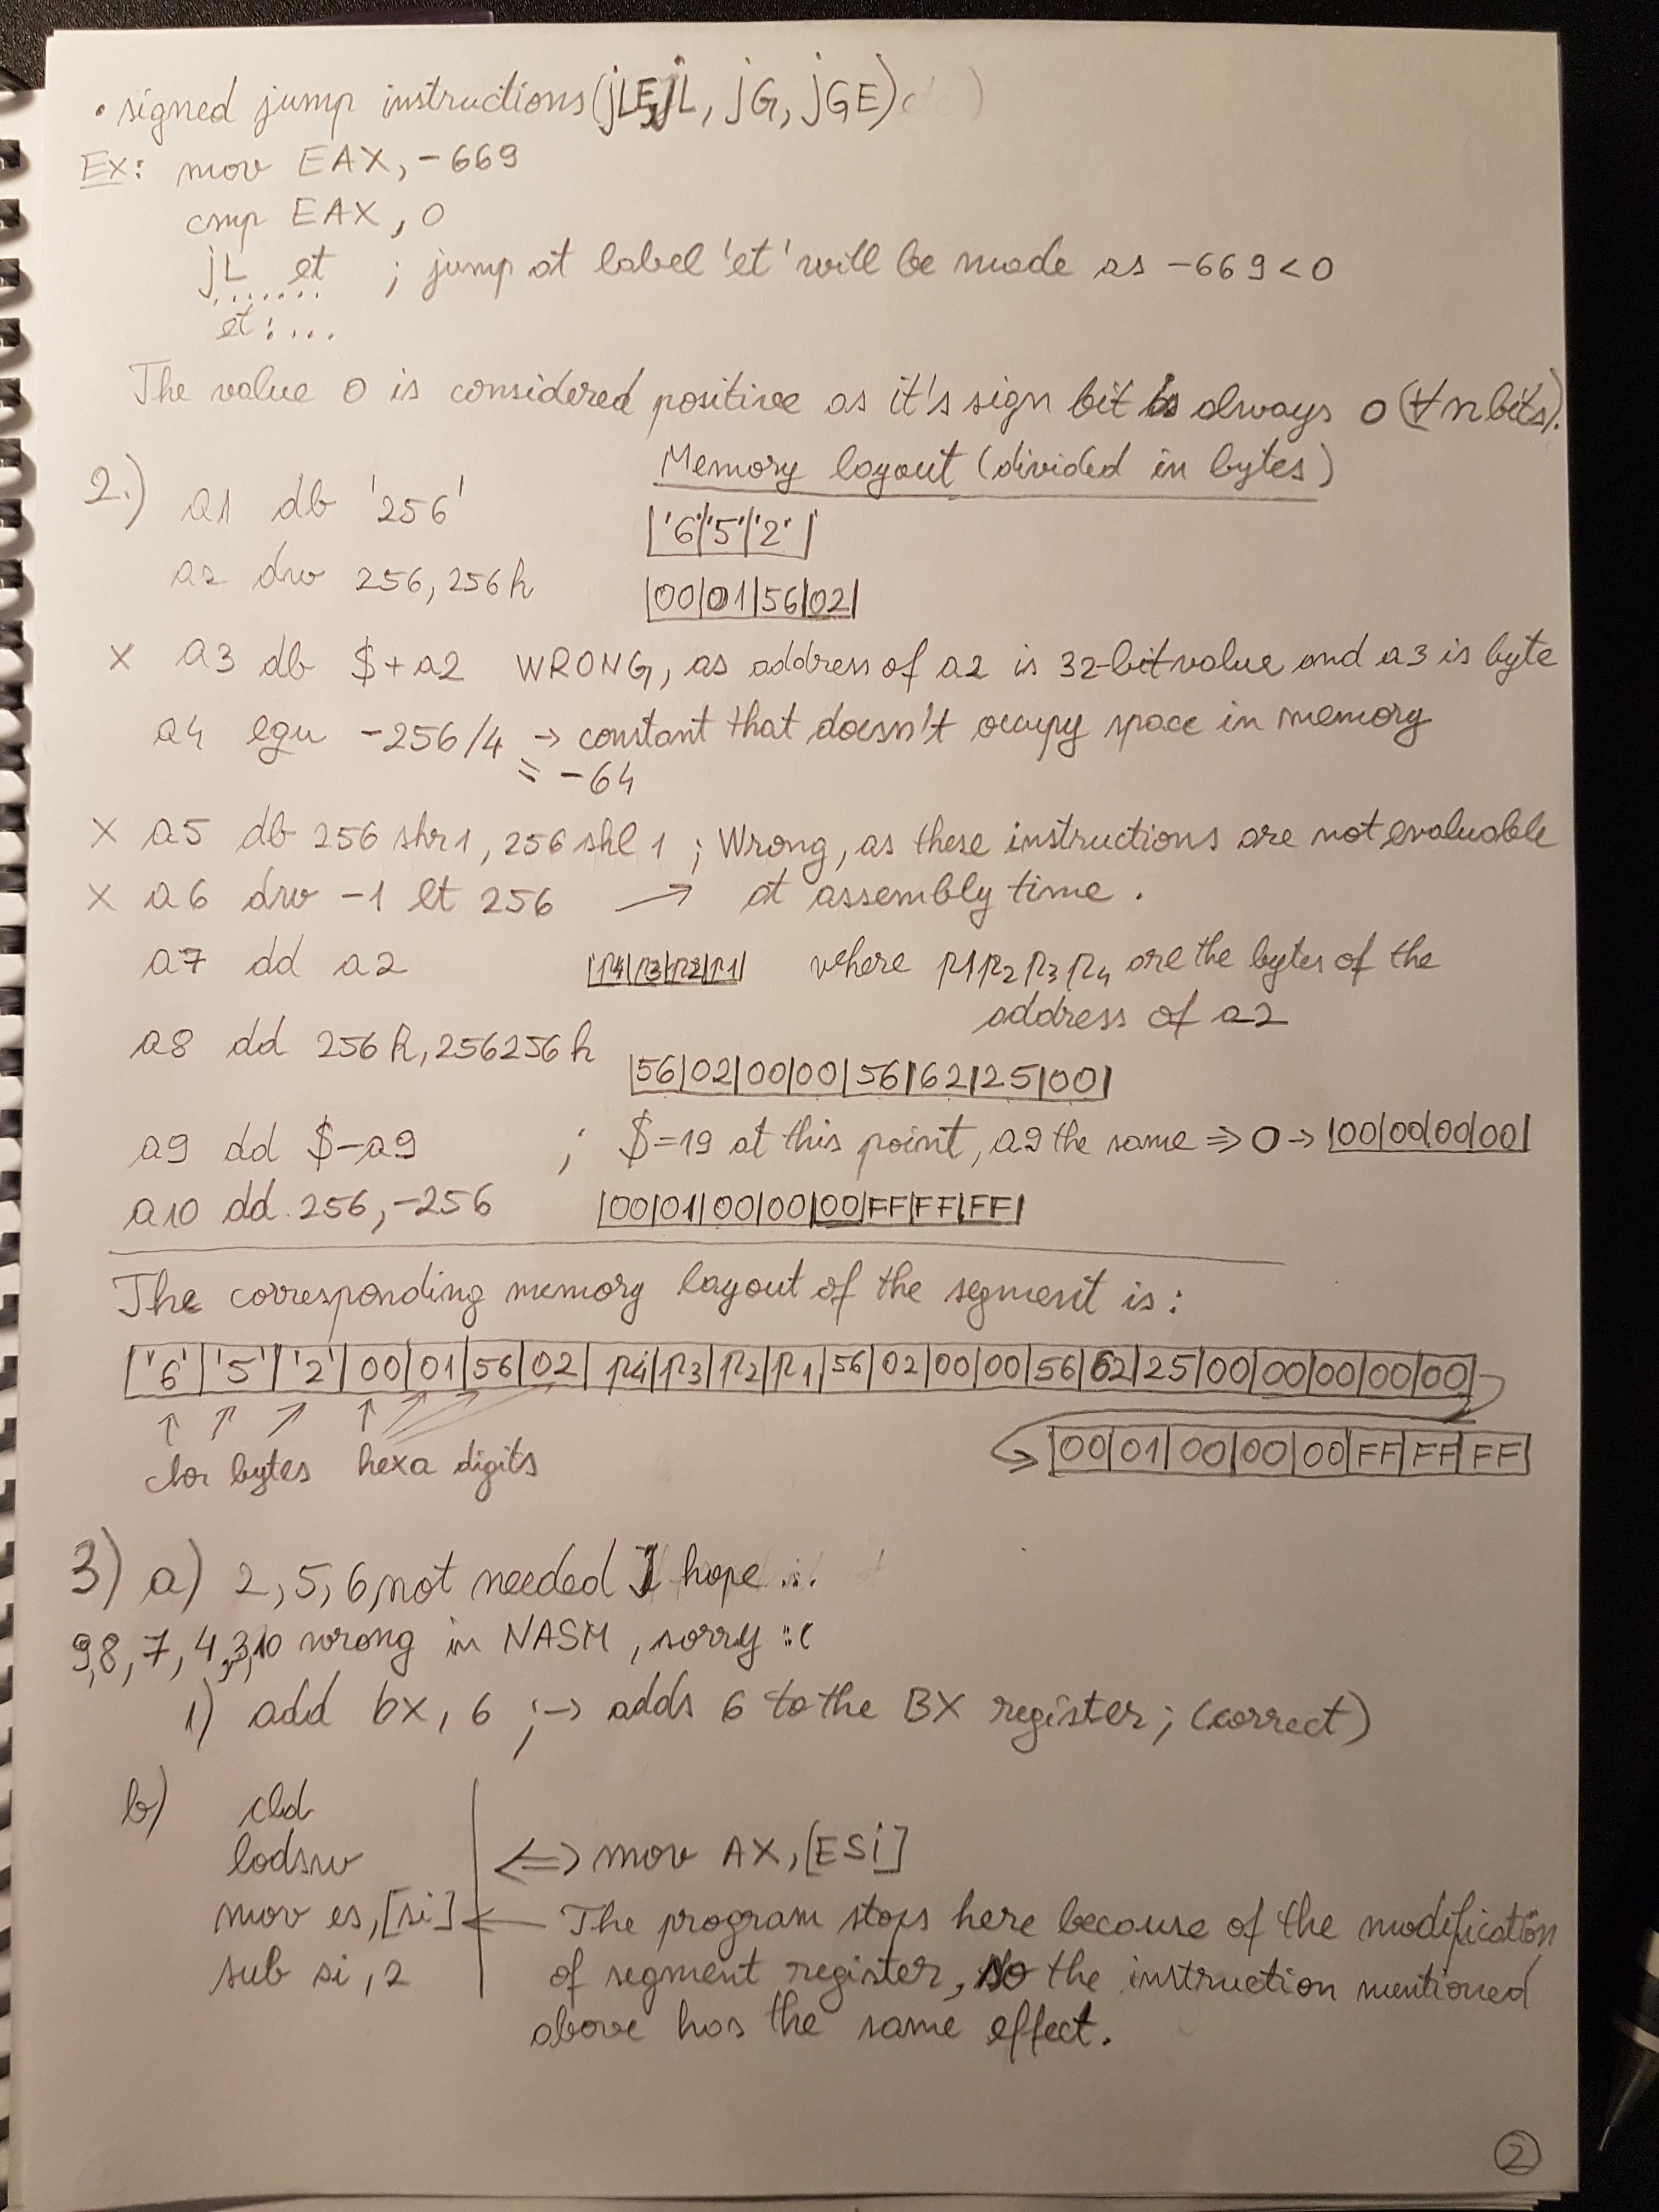 • signed jump instructions (jLE, jL, jG, jGE)
Ex: mov EAX, -669
cmp EAX, 0
jL et ; jump at label 'et' will be made as -669<0
.......
et: ...
The value 0 is considered positive as it's sign bit is always 0 (∀ n bits).
Memory layout (divided in bytes)
2.) a1 db '256' |'6'|'5'|'2'|
a2 dw 256, 256h |00|01|56|02|
X a3 db $+a2 WRONG, as address of a2 is 32-bit value and a3 is byte
a4 equ -256/4 → constant that doesn't ocupy space in memory
= -64
X a5 db 256 shr 1, 256 shl 1 ; Wrong, as these instructions are not evaluable
X a6 dw -1 lt 256 → at assembly time.
a7 dd a2 |p4|p3|p2|p1| where p1p2p3p4 are the bytes of the
address of a2
a8 dd 256h, 256256h |56|02|00|00|56|62|25|00|
a9 dd $-a9 ; $=19 at this point, a9 the same ⇒ 0 → |00|00|00|00|
a10 dd 256, -256 |00|01|00|00|00|FF|FF|FF|
The corresponding memory layout of the segment is:
|'6'|'5'|'2'|00|01|56|02|p4|p3|p2|p1|56|02|00|00|56|62|25|00|00|00|00|00|
|00|01|00|00|00|FF|FF|FF|
bytes hexa digits
3) a) 2, 5, 6, not needed I hope :.
9, 8, 7, 4, 3, 10 wrong in NASM, sorry :(
1) add bx, 6 ;→ adds 6 to the BX register; (correct)
b) cld
lodsw ⇔ mov AX, [ESi]
mov es, [si] ← The program stops here because of the modification
sub si, 2 of segment register, so the instruction mentioned
above has the same effect.
2